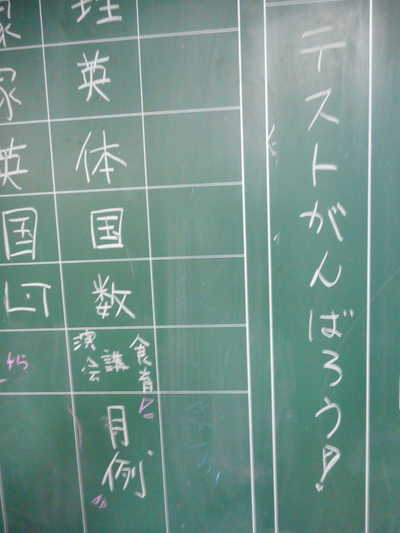 テストがんばろう!
理
英
体
国
数
食育
講演会
月例
家
英
国
LT